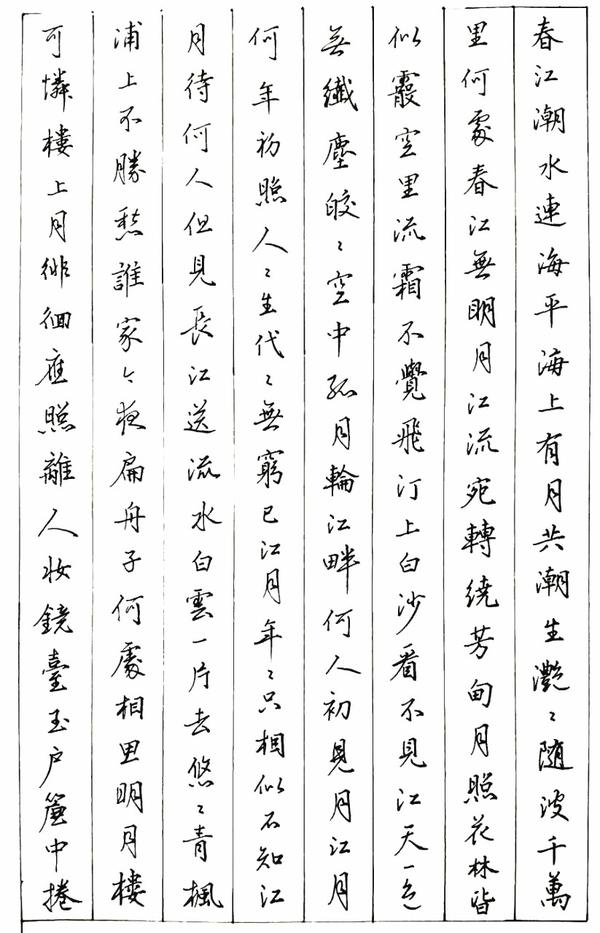 春江潮水連海平海上有月共潮生灔〻随波千萬
里何處春江無明月江流宛轉繞芳甸月照花林皆
似霰空里流霜不覺飛汀上白沙看不見江天一色
無纖塵皎〻空中孤月輪江畔何人初見月江月
何年初照人〻生代〻無窮已江月年〻只相似不知江
月待何人但見長江送流水白雲一片去悠〻青楓
浦上不勝愁誰家今夜扁舟子何處相思明月樓
可憐樓上月徘徊應照離人妝鏡臺玉户簾中捲